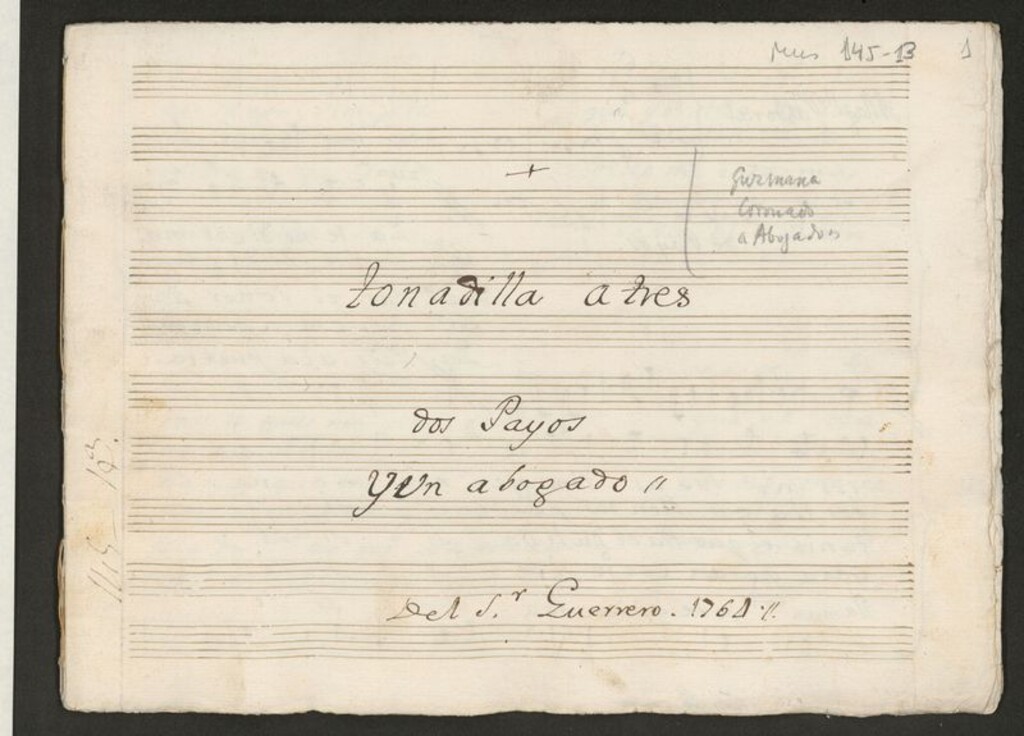 Mus 145-13 1
+
Guzmana
Coronado
a Abogados
tonadilla a tres
dos Payos
Y Un abogado //
Del S.r Guerrero. 1764 //.